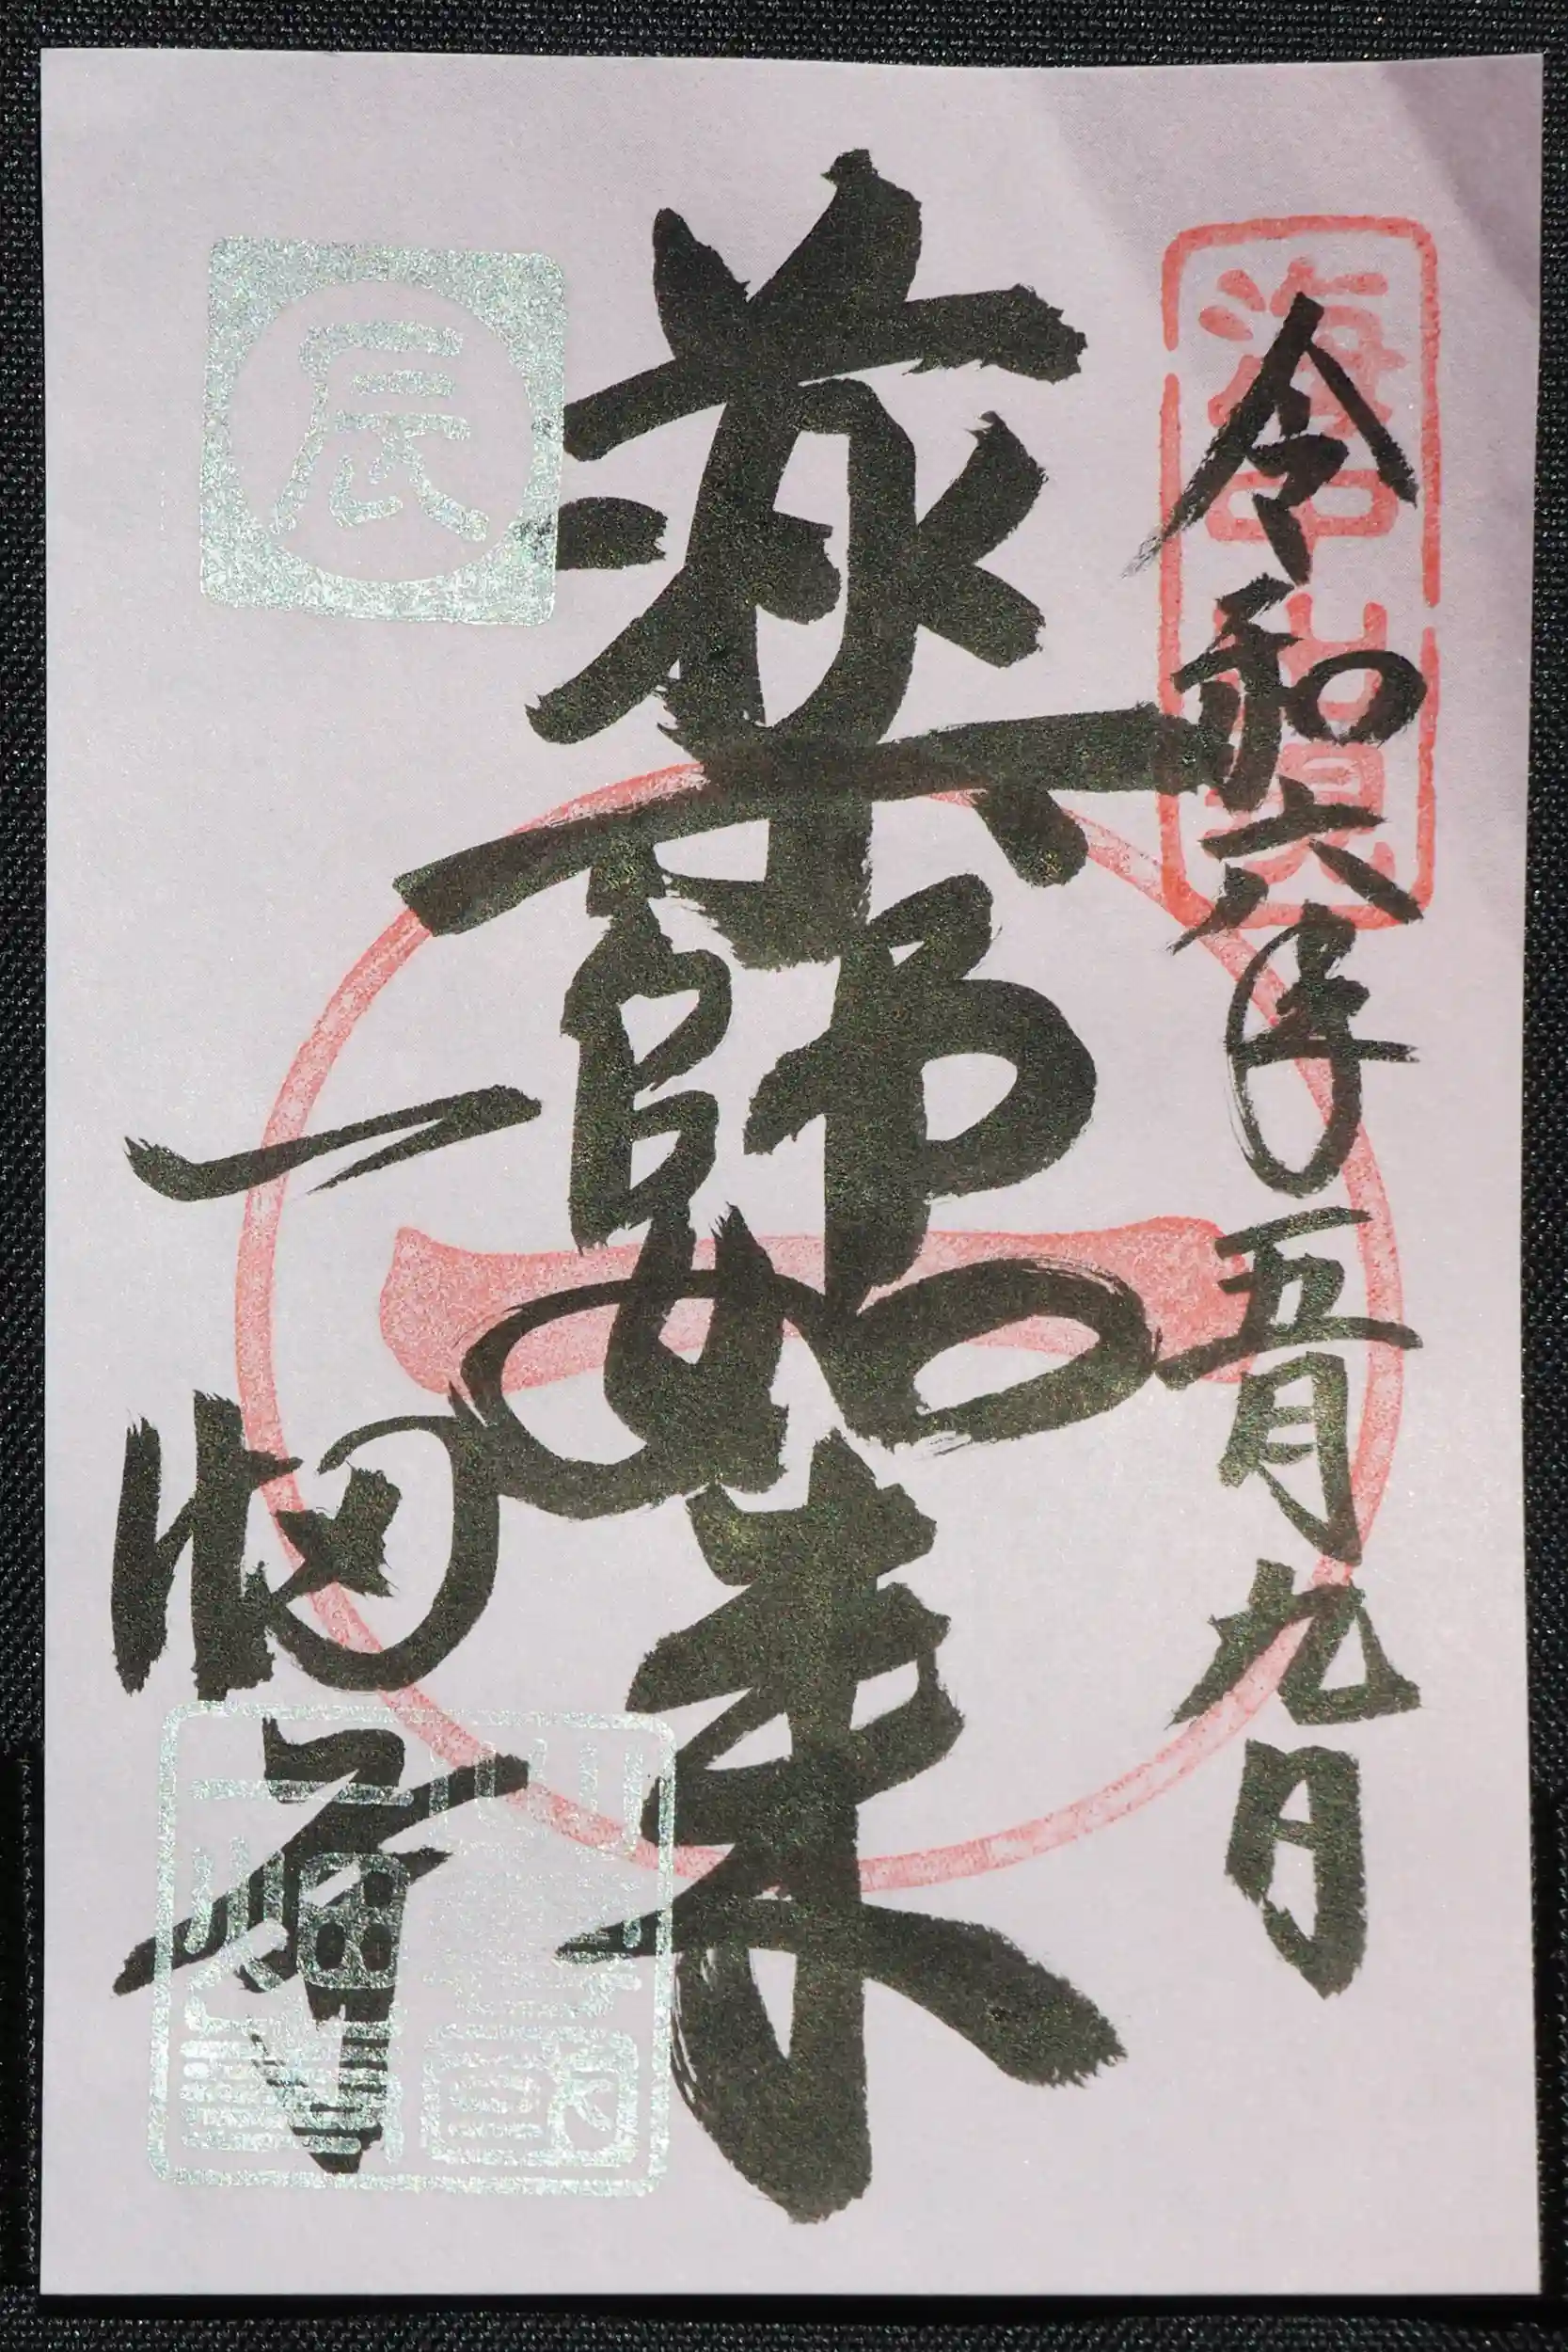 海中出現
令和六年五月九日
薬師如来
一
辰
一畑寺